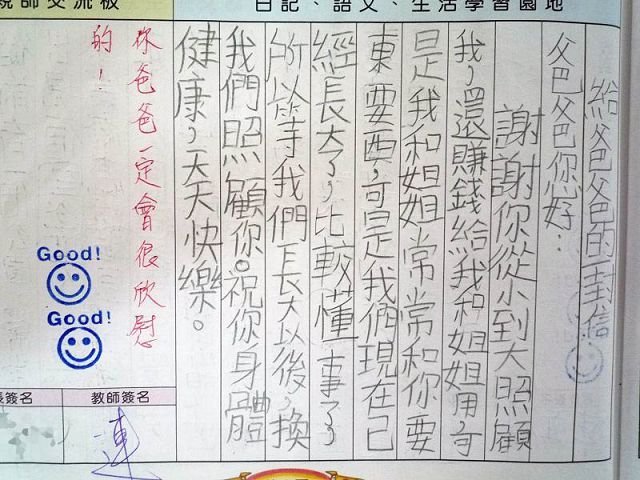 親師交流板
日記、語文、生活學習園地
給爸爸的一封信
爸爸您好：
謝謝你從小到大照顧
我，還賺錢給我和姐姐用，可
是我和姐姐常常和你要
東要西，可是我們現在已
經長大了，比較懂事了，
所以等我們長大以後，換
我們照顧你。祝你身體
健康，天天快樂。
你爸爸一定會很欣慰
的！
Good!
Good!
長簽名
教師簽名
連